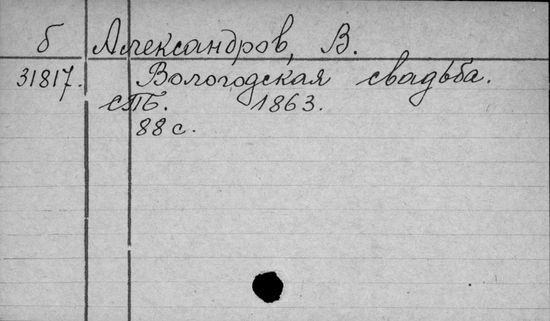 б Александров, В.
31817. Вологодская свадьба.
СПБ. 1863.
88 с.